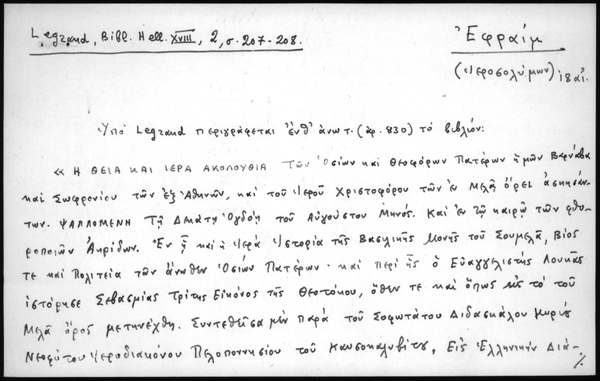 Legrand, Bibl. Hell. XVIII, 2, σ. 207-208.
Ἐφραίμ
(Ἱεροσολύμων) 18 αἰ.
Ὑπὸ Legrand περιγράφεται ἔνθ' ἀνωτ. (ἀρ. 830) τὸ βιβλίον:
« Η ΘΕΙΑ ΚΑΙ ΙΕΡΑ ΑΚΟΛΟΥΘΙΑ Τῶν Ὁσίων καὶ Θεοφόρων Πατέρων ἡμῶν Βαρνάβα
καὶ Σωφρονίου τῶν ἐξ Ἀθηνῶν, καὶ τοῦ Ἱεροῦ Χριστοφόρου τῶν ἐν Μελᾷ ὄρει ἀσκησάν-
των. ΨΑΛΛΟΜΕΝΗ Τῇ Δεκάτῃ Ὀγδόῃ τοῦ Αὐγούστου Μηνός. Καὶ ἐν τῷ καιρῷ τῶν φθο-
ροποιῶν Ἀκρίδων. Ἐν ᾗ καὶ ἡ Ἱερὰ Ἱστορία τῆς Βασιλικῆς Μονῆς τοῦ Σουμελᾶ, Βίος
τε καὶ Πολιτεία τῶν ἄνωθεν Ὁσίων Πατέρων· καὶ περὶ ἧς ὁ Εὐαγγελιστὴς Λουκᾶς
ἱστόρησε Σεβασμίας Τρίτης Εἰκόνος τῆς Θεοτόκου, ὅθεν τε καὶ ὅπως εἰς τὸ τοῦ
Μελᾶ ὄρος μετηνέχθη. Συντεθεῖσα μὲν παρὰ τοῦ Σοφωτάτου Διδασκάλου Κυρίου
Νεοφύτου Ἱεροδιακόνου Πελοποννησίου τοῦ Καυσοκαλυβίτου, Εἰς Ἑλληνικὴν Διά-
./.